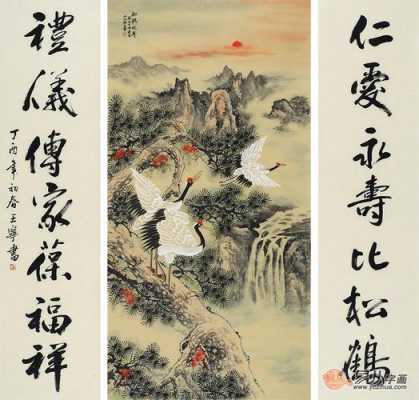 仁愛永壽比松鶴
禮儀傳家葆福祥
丁酉年初春王寧書